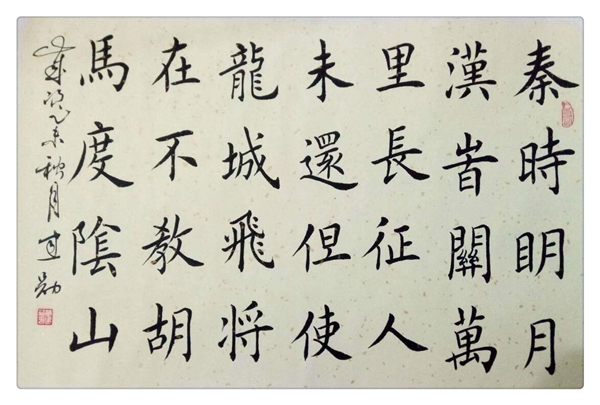 秦時眀月
漢旹關萬
里長征人
未還但使
龍城飛将
在不教胡
馬度陰山
歲次乙未秋月